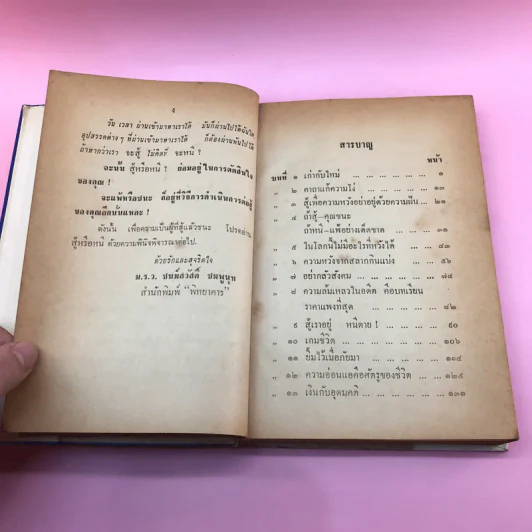 ๔
วัน เวลา ผ่านเข้ามาหาเราได้ มันก็ผ่านไปได้ฉันใด
อุปสรรคต่างๆ ที่ผ่านเข้ามาหาเราได้ ก็ต้องผ่านพ้นไปได้
ถ้าหากว่าเรา จะสู้ ไม่คิดที่ จะหนี ?
จะนั้น สู้หรือหนี ? ย่อมอยู่ในการตัดสินใจ
ของคุณ !
จะแพ้หรือชนะ ก็อยู่ที่วิธีการดำเนินการต่อสู้
ของคุณอีกนั่นแหละ !
ดังนั้น เพื่อความเป็นผู้ที่สู้แล้วชนะ โปรดอ่าน
สู้หรือหนี ด้วยความพินิจพิจารณาต่อไป.
ด้วยรักและสุจริตใจ
ม.ร.ว. ชนม์สวัสดิ์ ชมพูนุท
สำนักพิมพ์ "พิทยาคาร"
สารบาญ
หน้า
บทที่ ๑ เก่ากับใหม่ ... ... ... ... ๑
" ๒ คาถาแก้ความโง่ ... ... ... ๑๓
" ๓ สู้เพื่อความหวังอย่าอยู่ด้วยความฝัน ... ๒๑
" ๔ ถ้าสู้–คุณชนะ
ถ้าหนี–แพ้อย่างเด็ดขาด ... ...
" ๕ ในโลกนี้ไม่มีอะไรที่หวังได้ ... ๔๓
" ๖ ความหวังจากสลากกินแบ่ง ... ๕๑
" ๗ อย่ากลัวสังคม ... ... ... ๗๔
" ๘ ความล้มเหลวในอดีต คือบทเรียน
ราคาแพงที่สุด ... ... ... ๘๒
" ๙ สู้เราอยู่ หนีตาย ! ... ... ๙๐
" ๑๐ เกมชีวิต ... ... ... ๑๐๖
" ๑๑ ยิ้มไว้เมื่อภัยมา ... ... ... ๑๑๔
" ๑๒ ความอ่อนแอคือศัตรูของชีวิต ... ... ๑๒๕
" ๑๓ เงินกับอุดมคติ ... ... ... ๑๓๑